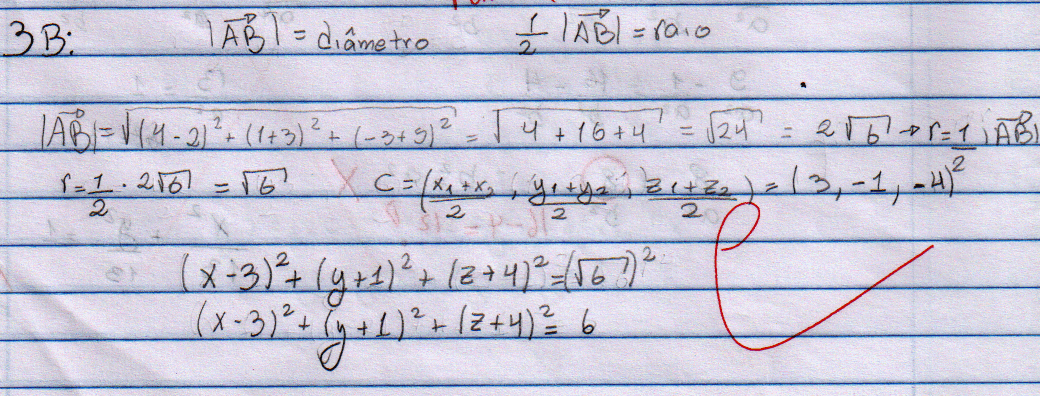 3B: |AB→| = diâmetro 1/2 |AB→| = raio
|AB→| = √((4-2)² + (1+3)² + (-3+5)²) = √(4+16+4) = √24 = 2√6 → r = 1/2 |AB→|
r = 1/2 · 2√6 = √6 C = (x₁+x₂/2, y₁+y₂/2, z₁+z₂/2) = (3, -1, -4)²
(x-3)² + (y+1)² + (z+4)² = (√6)²
(x-3)² + (y+1)² + (z+4)² = 6